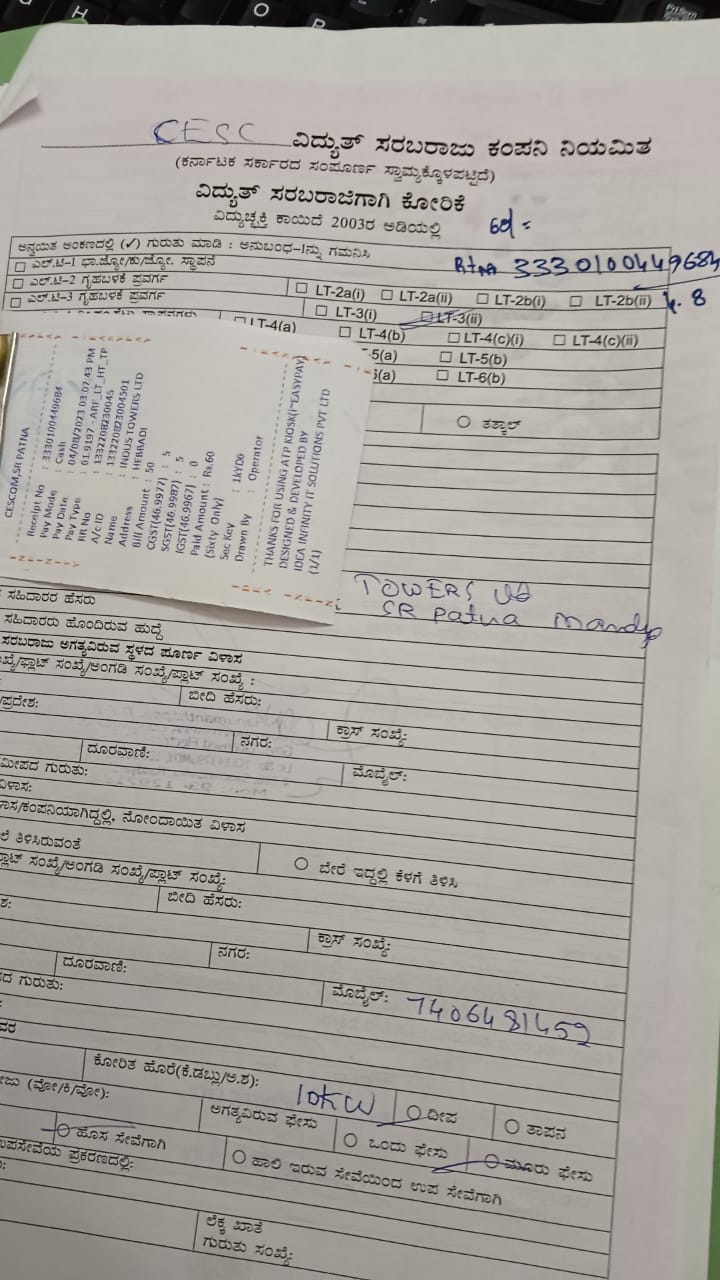 CESC ವಿದ್ಯುತ್ ಸರಬರಾಜು ಕಂಪನಿ ನಿಯಮಿತ
(ಕರ್ನಾಟಕ ಸರ್ಕಾರದ ಸಂಪೂರ್ಣ ಸ್ವಾಮ್ಯಕ್ಕೊಳಪಟ್ಟಿದೆ)
ವಿದ್ಯುತ್ ಸರಬರಾಜಿಗಾಗಿ ಕೋರಿಕೆ
ವಿದ್ಯುಚ್ಛಕ್ತಿ ಕಾಯಿದೆ 2003ರ ಅಡಿಯಲ್ಲಿ
ಅನ್ವಯಿತ ಅಂಕಣದಲ್ಲಿ (✓) ಗುರುತು ಮಾಡಿ : ಅನುಬಂಧ-1ನ್ನು ಗಮನಿಸಿ
3330100449684
ಎಲ್.ಟಿ-1 ಭಾ.ಜ್ಯೋ/ಕು.ಜ್ಯೋ. ಸ್ಥಾಪನೆ
ಎಲ್.ಟಿ-2 ಗೃಹಬಳಕೆ ಪ್ರವರ್ಗ LT-2a(i) LT-2a(ii) LT-2b(i) LT-2b(ii)
ಎಲ್.ಟಿ-3 ಗೃಹಬಳಕೆ ಪ್ರವರ್ಗ LT-3(i) LT-3(ii)
LT-4(a) LT-4(b) LT-4(c)(i) LT-4(c)(ii)
-5(a) LT-5(b)
6(a) LT-6(b)
ತತ್ಕಾಲ್
CESCOM,SR PATNA
Receipt No : 3330100449684
Pay Mode : Cash
Pay Date : 04/08/2023 03:07:43 PM
Pay Type : 61.9197 - ARF_LT_HT_TP
RR No : 1332208230045
A/c ID : 133220823004501
Name : INDUS TOWERS LTD
Address : HEBBADI
Bill Amount : 50
CGST(46.9977) : 5
SGST(46.9987) : 5
IGST(46.9967) : 0
Paid Amount : Rs.60
(Sixty Only)
Sec Key : 1kYD6
Drawn By : Operator
THANKS FOR USING ATP KIOSK(i~EASYPAY)
DESIGNED & DEVELOPED BY
IDEA INFINITY IT SOLUTIONS PVT LTD
(1/1)
TOWERS
SR Patna Mandya
ಸಹಿದಾರರ ಹೆಸರು
ಸಹಿದಾರರು ಹೊಂದಿರುವ ಹುದ್ದೆ
ಸರಬರಾಜು ಅಗತ್ಯವಿರುವ ಸ್ಥಳದ ಪೂರ್ಣ ವಿಳಾಸ
ಖ್ಯೆ/ಫ್ಲಾಟ್ ಸಂಖ್ಯೆ/ಅಂಗಡಿ ಸಂಖ್ಯೆ/ಪ್ಲಾಟ್ ಸಂಖ್ಯೆ :
ಬೀದಿ ಹೆಸರು:
/ಪ್ರದೇಶ: ಕ್ರಾಸ್ ಸಂಖ್ಯೆ:
ನಗರ:
ದೂರವಾಣಿ: ಮೊಬೈಲ್:
ಮೀಪದ ಗುರುತು:
ವಿಳಾಸ:
ಾಸ/ಕಂಪನಿಯಾಗಿದ್ದಲ್ಲಿ, ನೋಂದಾಯಿತ ವಿಳಾಸ
ಲೆ ತಿಳಿಸಿರುವಂತೆ ಬೇರೆ ಇದ್ದಲ್ಲಿ ಕೆಳಗೆ ತಿಳಿಸಿ
್ಲಾಟ್ ಸಂಖ್ಯೆ/ಅಂಗಡಿ ಸಂಖ್ಯೆ/ಪ್ಲಾಟ್ ಸಂಖ್ಯೆ:
ಬೀದಿ ಹೆಸರು:
ಶ: ಕ್ರಾಸ್ ಸಂಖ್ಯೆ:
ನಗರ:
ದೂರವಾಣಿ: ಮೊಬೈಲ್: 7406481459
ಪದ ಗುರುತು:
ವರ
ಕೋರಿತ ಹೊರೆ(ಕೆ.ಡಬ್ಲು/ಅ.ಶ): 10KW ದೀಪ ತಾಪನ
ಜು (ವೋ/ಕಿ/ವೋ): ಅಗತ್ಯವಿರುವ ಫೇಸು ಒಂದು ಫೇಸು ಮೂರು ಫೇಸು
ಹೊಸ ಸೇವೆಗಾಗಿ ಹಾಲಿ ಇರುವ ಸೇವೆಯಿಂದ ಉಪ ಸೇವೆಗಾಗಿ
ಉಪಸೇವೆಯ ಪ್ರಕರಣದಲ್ಲಿ:
ಲೆಕ್ಕ ಖಾತೆ
ಗುರುತು ಸಂಖ್ಯೆ: